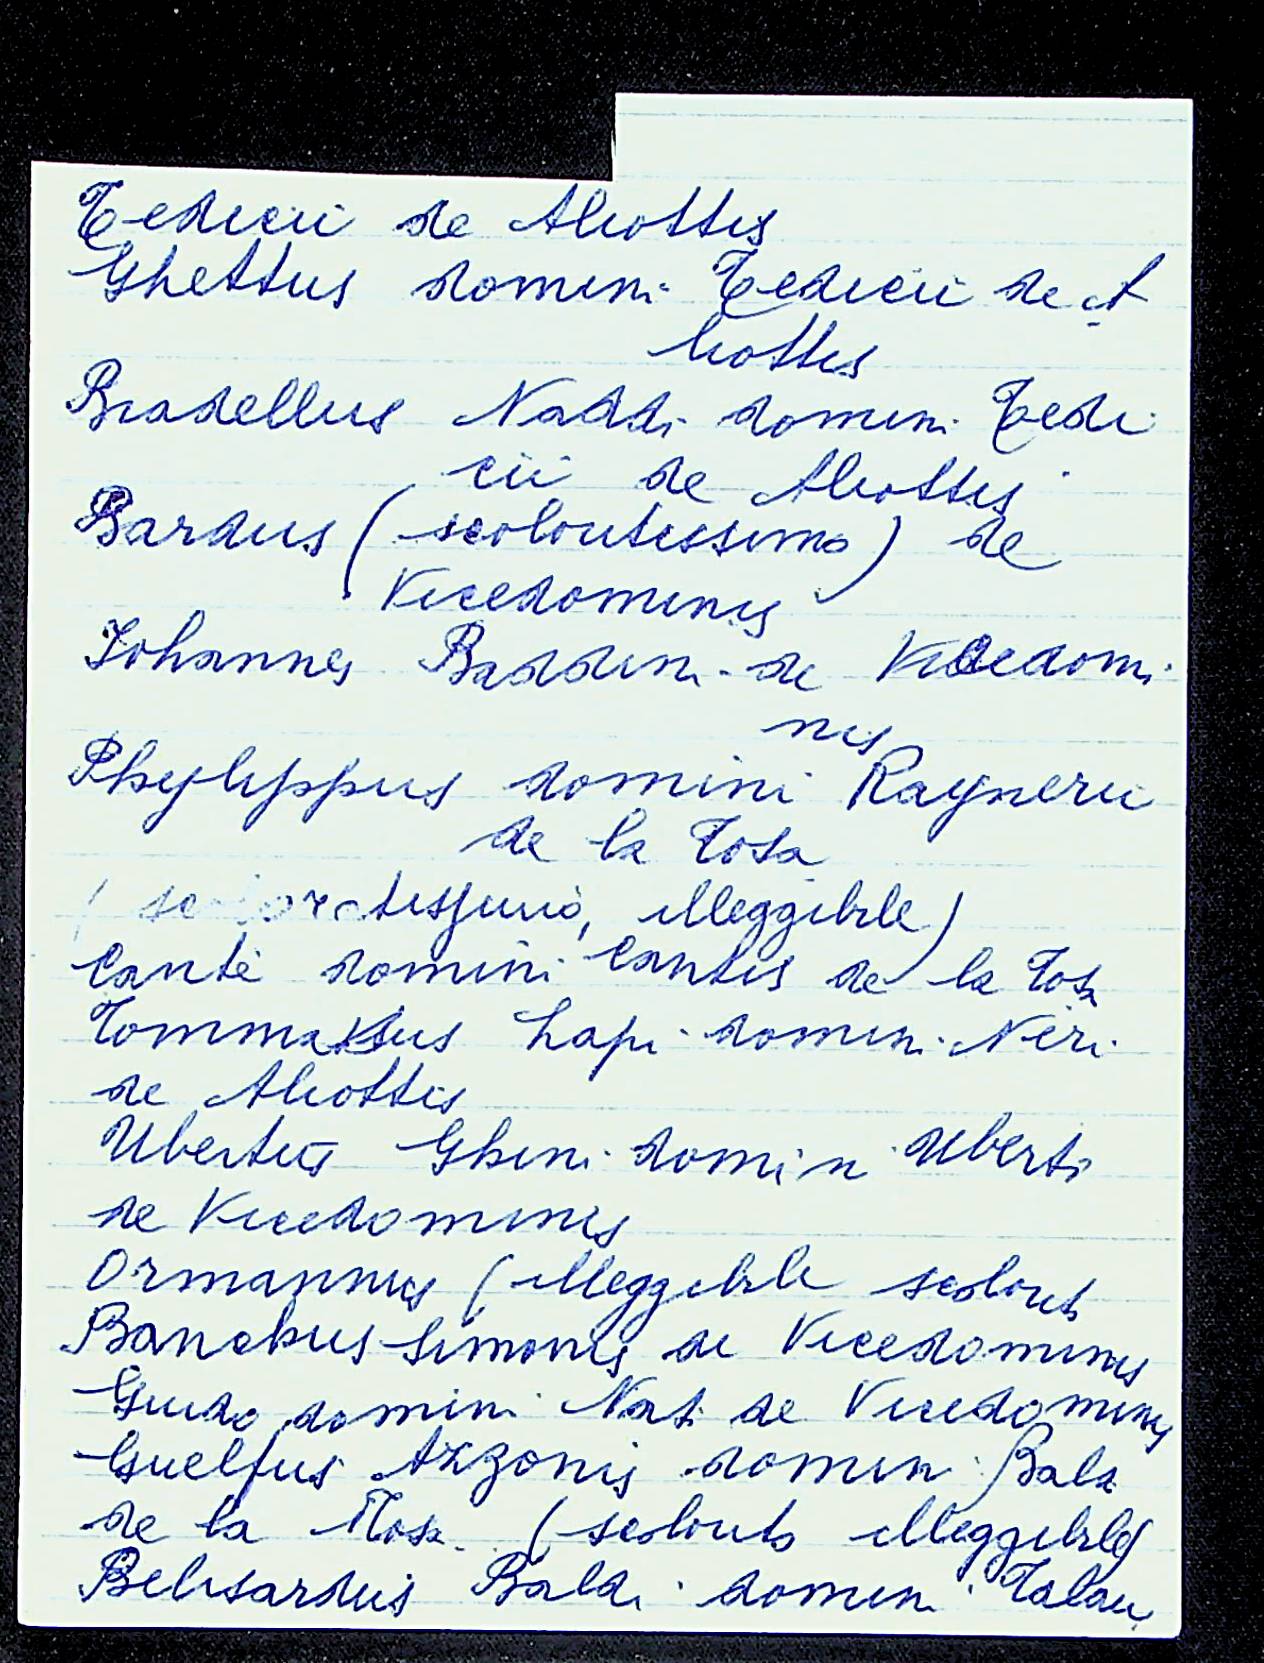 Tedicii de Aliottis
Ghettus domini Tedicii de A
liottis
Biadellus Naddi domini Tedi
cii de Aliottis
Bardus (scoloritissimo) de
Vicedominis
Johannes Baddini de Vicedomi
nis
Phylippus domini Raynerii
de la Tosa
(scoloritissimo, illeggibile)
Cante domini Cantis de la Tosa
Tommasus Lapi domini Neri
de Aliottis
Ubertus Ghini domini Uberti
de Vicedominis
Ormannus (illeggibile scolorito
Banchus Simonis de Vicedominis
Guido domini Nati de Vicedominis
Guelfus Azzonis domini Baldi
de la Tosa (scolorito illeggibile)
Belisardus Baldi domini Talani